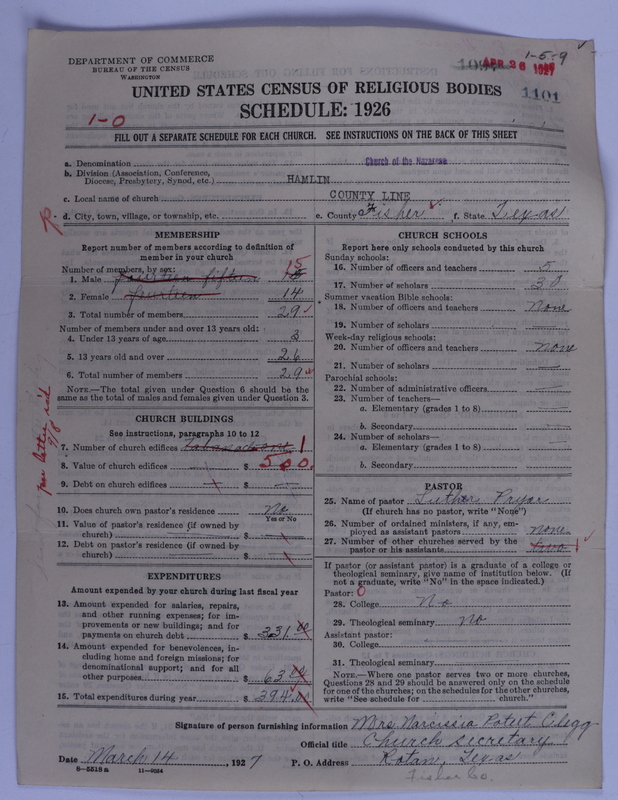 DEPARTMENT OF COMMERCE
BUREAU OF THE CENSUS
WASHINGTON
1-5-9
APR 26 1927
1101
UNITED STATES CENSUS OF RELIGIOUS BODIES
SCHEDULE: 1926
1-0
FILL OUT A SEPARATE SCHEDULE FOR EACH CHURCH. SEE INSTRUCTIONS ON THE BACK OF THIS SHEET
a. Denomination Church of the Nazarene
b. Division (Association, Conference, Diocese, Presbytery, Synod, etc.) HAMLIN
c. Local name of church COUNTY LINE
d. City, town, village, or township, etc. e. County Fisher f. State Texas
MEMBERSHIP
Report number of members according to definition of member in your church
Number of members, by sex:
1. Male fourteen fifteen 15
2. Female fourteen 14
3. Total number of members 29
Number of members under and over 13 years old:
4. Under 13 years of age 3
5. 13 years old and over 26
6. Total number of members 29
NOTE.—The total given under Question 6 should be the same as the total of males and females given under Question 3.
per letter rec'd
CHURCH BUILDINGS
See instructions, paragraphs 10 to 12
7. Number of church edifices 1
8. Value of church edifices $ 500.
9. Debt on church edifices $
10. Does church own pastor's residence No
Yes or No
11. Value of pastor's residence (if owned by church) $
12. Debt on pastor's residence (if owned by church) $
EXPENDITURES
Amount expended by your church during last fiscal year
13. Amount expended for salaries, repairs, and other running expenses; for improvements or new buildings; and for payments on church debt $ 331.00
14. Amount expended for benevolences, including home and foreign missions; for denominational support; and for all other purposes $ 63.00
15. Total expenditures during year $ 394.00
CHURCH SCHOOLS
Report here only schools conducted by this church
Sunday schools:
16. Number of officers and teachers 5
17. Number of scholars 30
Summer vacation Bible schools:
18. Number of officers and teachers None
19. Number of scholars
Week-day religious schools:
20. Number of officers and teachers none
21. Number of scholars
Parochial schools:
22. Number of administrative officers
23. Number of teachers—
a. Elementary (grades 1 to 8)
b. Secondary
24. Number of scholars—
a. Elementary (grades 1 to 8)
b. Secondary
PASTOR
25. Name of pastor Luther Pryor
(If church has no pastor, write "None")
26. Number of ordained ministers, if any, employed as assistant pastors none
27. Number of other churches served by the pastor or his assistants two 1
If pastor (or assistant pastor) is a graduate of a college or theological seminary, give name of institution below. (If not a graduate, write "No" in the space indicated.)
Pastor: 0
28. College No
29. Theological seminary No
Assistant pastor:
30. College
31. Theological seminary
NOTE.—Where one pastor serves two or more churches, Questions 28 and 29 should be answered only on the schedule for one of the churches; on the schedules for the other churches, write "See schedule for church."
Signature of person furnishing information Mrs. Narcissia Poteet Clegg
Official title Church secretary
Date March 14, 1927 P. O. Address Rotan, Texas
8-5518a 11-9064
Fisher Co.